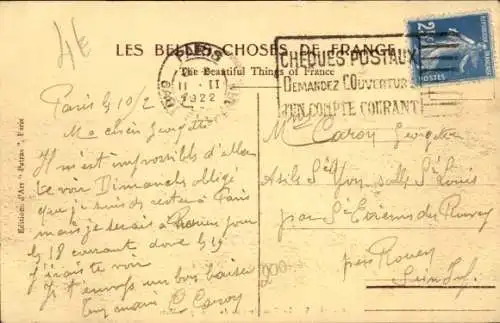 4€
LES BELLES CHOSES DE FRANCE
The Beautiful Things of France
PARIS
11 - II
1922
CHÈQUES POSTAUX
DEMANDEZ L'OUVERTURE
D'UN COMPTE COURANT
POSTES
Editions d'Art "Patras", Paris
Paris le 10/2
Ma chère Georgette
Il m'est impossible d'aller
te voir Dimanche obligé
que je suis de rester à Paris
mais je serai à Rouen pour
le 18 courant donc le 19
j'irais te voir
Je t'envoys un bon baiser
Ton mari C Caroy
200
Mme Caroy Georgette
Asile St Yon salle St Louis
par St Etienne du Rouvray
près Rouen
Sein Inf.